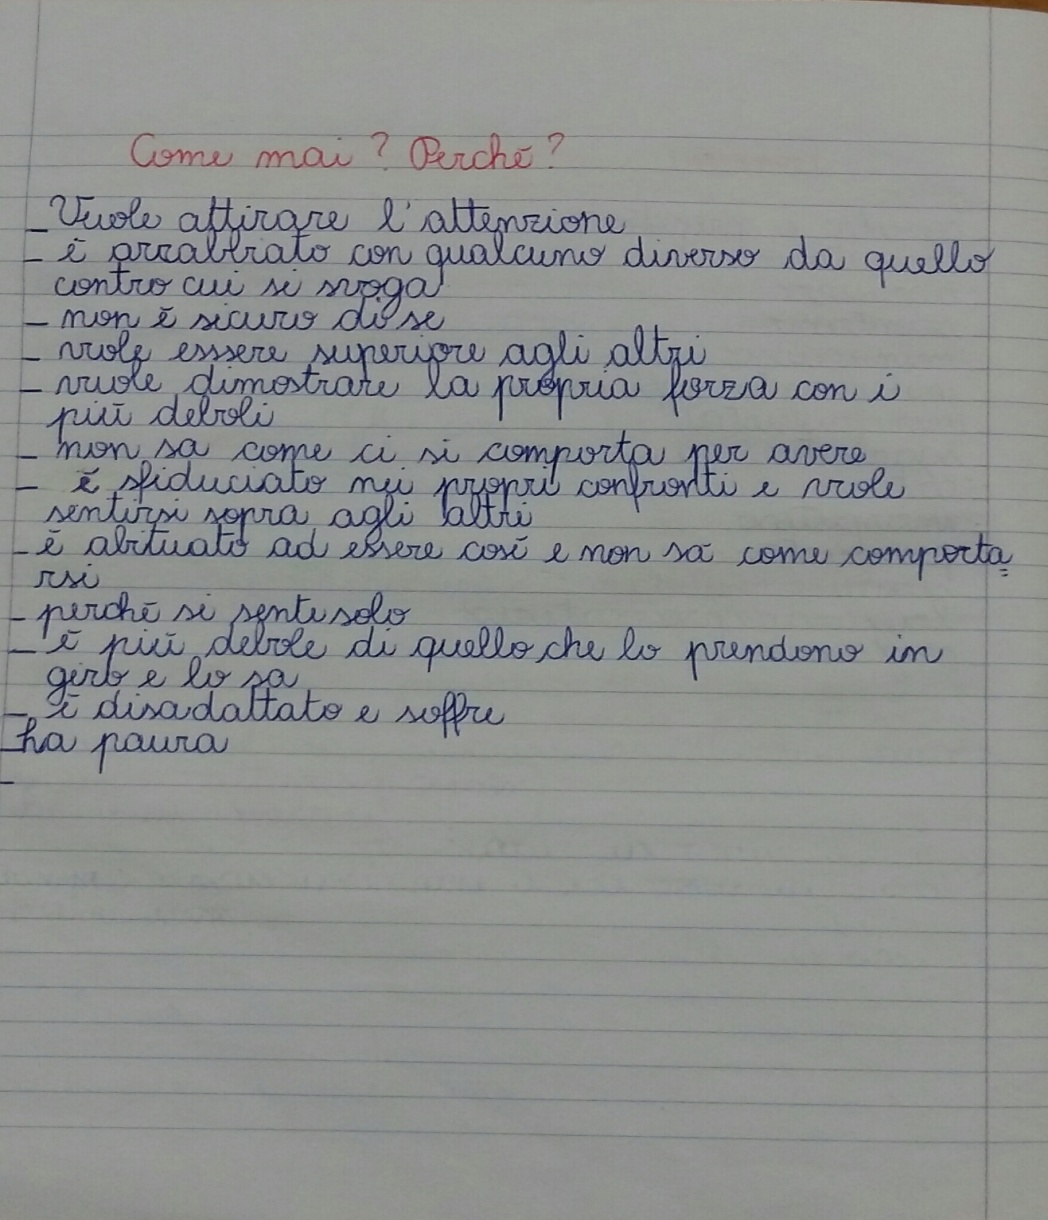 Come mai? Perchè?
_ Vuole attirare l'attenzione
_ è arrabbiato con qualcuno diverso da quello
contro cui si svoga
_ non è sicuro di se
_ vuole essere superiore agli altri
_ vuole dimostrare la propria forza con i
più deboli
_ non sa come ci si comporta per avere
_ è sfiduciato nei propri confronti e vuole
sentirsi sopra agli altri
_ è abituato ad essere così e non sa come comporta=
rsi
_ perchè si sente solo
_ è più debole di quello che lo prendono in
giro e lo sa
_ è disadattato e soffre
_ ha paura
_